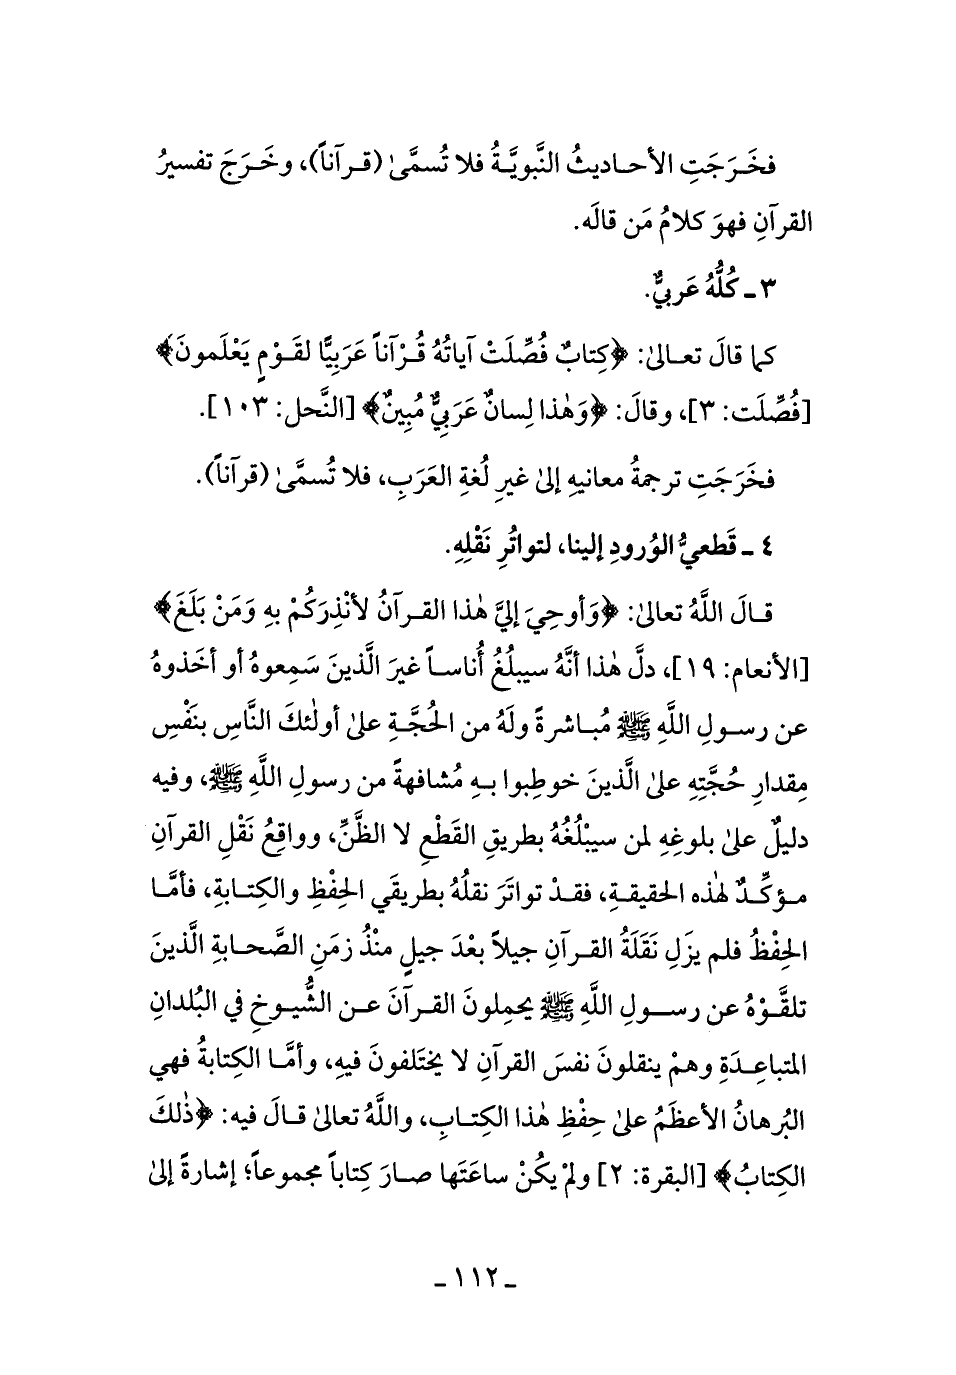 فخَـرَجَتِ الأحـاديثُ النَّبويَّـةُ فلا تُسمَّىٰ (قـرآناً)، وخَـرَجَ تفسيرُ
القرآنِ فهوَ كلامُ مَن قالَه.
٣ ـ كُلُّهُ عَربيٌّ.
كما قالَ تعـالىٰ: ﴿كِتابٌ فُصِّلَتْ آياتُهُ قُـرْآناً عَرَبِيًّا لقَـوْمٍ يَعْلَمونَ﴾
[فُصِّلَت: ٣]، وقالَ: ﴿وَهٰذا لِسانٌ عَرَبِيٌّ مُبِينٌ﴾ [النَّحل: ١٠٣].
فخَرَجَتِ ترجمةُ معانيهِ إلىٰ غيرِ لُغةِ العَرَبِ، فلا تُسمَّىٰ (قرآناً).
٤ ـ قَطعيُّ الوُرودِ إلينا، لتواتُرِ نَقْلِهِ.
قـالَ اللَّهُ تعالىٰ: ﴿وَأوحِيَ إليَّ هٰذا القـرآنُ لأنْذِرَكُمْ بهِ وَمَنْ بَلَغَ﴾
[الأنعام: ١٩]، دلَّ هٰذا أنَّهُ سيبلُغُ أُناسـاً غيرَ الَّذينَ سَمِعوهُ أو أخَذوهُ
عن رسـولِ اللَّهِ ﷺ مُباشرةً ولَهُ من الحُجَّـةِ علىٰ أولٰئكَ النَّاسِ بنَفْسِ
مِقدارِ حُجَّتِهِ علىٰ الَّذينَ خوطِبوا بـهِ مُشافهةً من رسولِ اللَّهِ ﷺ، وفيه
دليلٌ علىٰ بلوغِهِ لمن سيبْلُغُهُ بطريقِ القَطْعِ لا الظَّنِّ، وواقِعُ نَقْلِ القرآنِ
مـؤكِّـدٌ لهٰذه الحقيقـةِ، فقـدْ تواتَرَ نقلُهُ بطريقَي الحِفْظِ والكِتـابةِ، فأمَّـا
الحِفْظُ فلم يزَلِ نَقَلَةُ القـرآنِ جيلاً بعْدَ جيلٍ منْذُ زمَنِ الصَّحـابةِ الَّذينَ
تلقَّـوْهُ عن رسـولِ اللَّهِ ﷺ يحمِلونَ القـرآنَ عـن الشُّيـوخِ في البُلدانِ
المتباعِـدَةِ وهمْ ينقلونَ نفسَ القرآنِ لا يختَلفونَ فيهِ، وأمَّـا الكِتابةُ فهي
البُرهانُ الأعظَمُ علىٰ حِفْظِ هٰذا الكِتـابِ، واللَّهُ تعالىٰ قـالَ فيه: ﴿ذٰلكَ
الكِتابُ﴾ [البقرة: ٢] ولمْ يكُنْ ساعَتَها صـارَ كِتاباً مجموعاً؛ إشارةً إلىٰ
ـ ١١٢ ـ